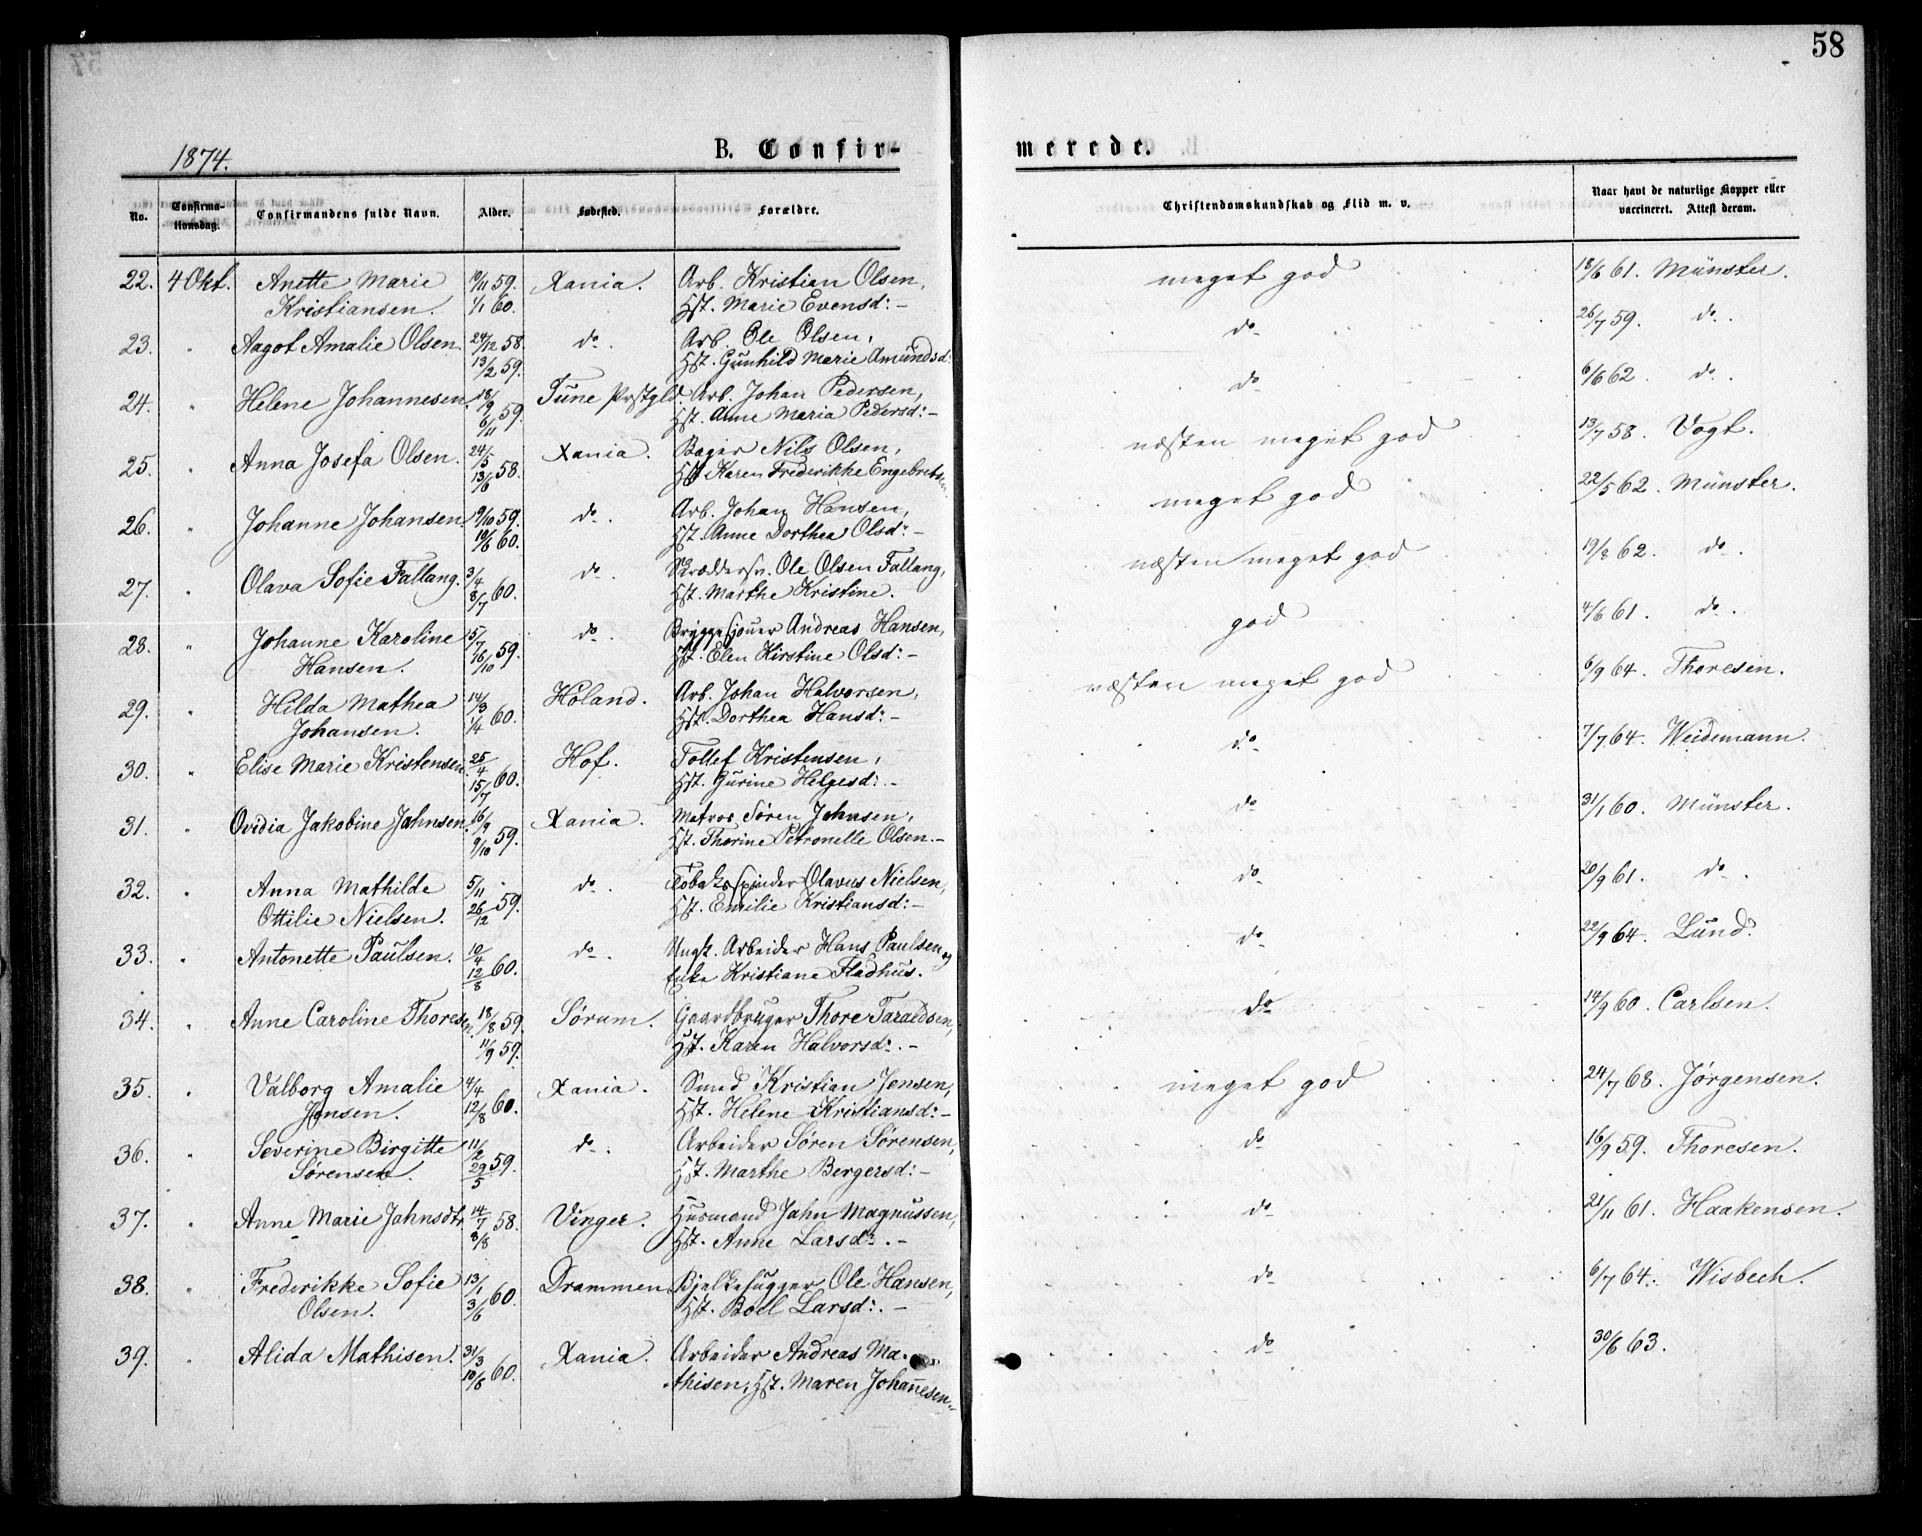 58
1874.
B. Confir-
merede.
No.
Confirma-
tionsdag.
Confirmandens fulde Navn.
Alder.
Fødested.
Forældre.
Christendomskundskab og Flid m. v.
Naar havt de naturlige Kopper eller
vaccineret. Attest derom.
22. 4 Okt. Anette Marie 10/11 59. Xania. Arb. Kristian Olsen, meget god 18/6 61. Münster.
Kristiansen. 1/1 60. Hst. Marie Evensd: -
23. " Aagot Amalie Olsen. 24/12 58. do. Arb. Ole Olsen, do 26/7 59. do.
13/2 59. Hst. Gunhild Marie Amundsd:
24. " Helene Johannesen. 18/9 59. Tune Prstgld. Arb. Johan Pedersen, do 6/6 62. do.
6/11 Hst. Anne Maria Pedersd: -
25. " Anna Josefa Olsen. 24/5 58. Xania. Bager Nils Olsen, næsten meget god 13/7 58. Vogt.
13/6 Hst. Karen Frederikke Engebretsen
26. " Johanne Johansen. 19/10 59. do. Arb. Johan Hansen, meget god 22/5 62. Münster.
10/6 60. Hst. Anne Dorthea Olsd: -
27. " Olava Sofie Fallang. 3/4 60. do. Skræddersv. Ole Olsen Fallang, næsten meget god 19/8 62. do.
8/7 Hst. Marthe Kristine.
28. " Johanne Karoline 5/7 59. do. Bryggesjouer Andreas Hansen, god 4/6 61. do.
Hansen. 16/10 Hst. Elen Kirstine Olsd: -
29. " Hilda Mathea 14/3 60. Høland. Arb. Johan Halvorsen, næsten meget god 6/9 64. Thoresen.
Johansen. 1/4 Hst. Dorthea Hansd: -
30. " Elise Marie Kristensen. 25/4 60. Hof. Tollef Kristensen, do 7/7 64. Weidemann.
15/7 Hst. Gurine Helgesd: -
31. " Ovidia Jakobine Jahnsen. 16/9 59. Xania. Matros Søren Johnsen, do 31/1 60. Münster.
9/10 Hst. Thorine Petronelle Olsen. -
32. " Anna Mathilde 5/11 59. do. Tobaksspinder Olavus Nielsen, do 20/9 61. do.
Ottilie Nielsen. 26/12 Hst. Emilie Kristiansd: -
33. " Antonette Paulsen. 10/4 60. do. Ungk. Arbeider Hans Paulsen og do 22/9 64. Lund.
12/8 Enke Kristiane Fladhus.
34. " Anne Caroline Thoresen. 18/8 59. Sørum. Gaardbruger Thore Taraldsen, do 14/9 60. Carlsen.
11/9 59. Hst. Karen Halvorsd: -
35. " Valborg Amalie 4/4 60. Xania. Smed Kristian Jensen, meget god 24/7 68. Jørgensen.
Jensen. 12/8 Hst. Helene Kristiansd: -
36. " Severine Birgitte 11/2 59. do. Arbeider Søren Sørensen, do 16/9 59. Thoresen.
Sørensen. 29/5 Hst. Marthe Bergersd: -
37. " Anne Marie Jahnsdtr 14/7 58. Vinger. Husmand Jahn Magnussen, do 21/11 61. Haakensen.
8/8 Hst. Anne Larsd: -
38. " Frederikke Sofie 13/1 60. Drammen. Bjelkehugger Ole Hansen, do 6/7 64. Wisbech.
Olsen. 3/6 Hst. Boel Larsd: -
39. " Alida Mathisen. 31/3 60. Xania. Arbeider Andreas Ma- do 30/6 63.
10/6 thisen, Hst. Maren Johannesen.